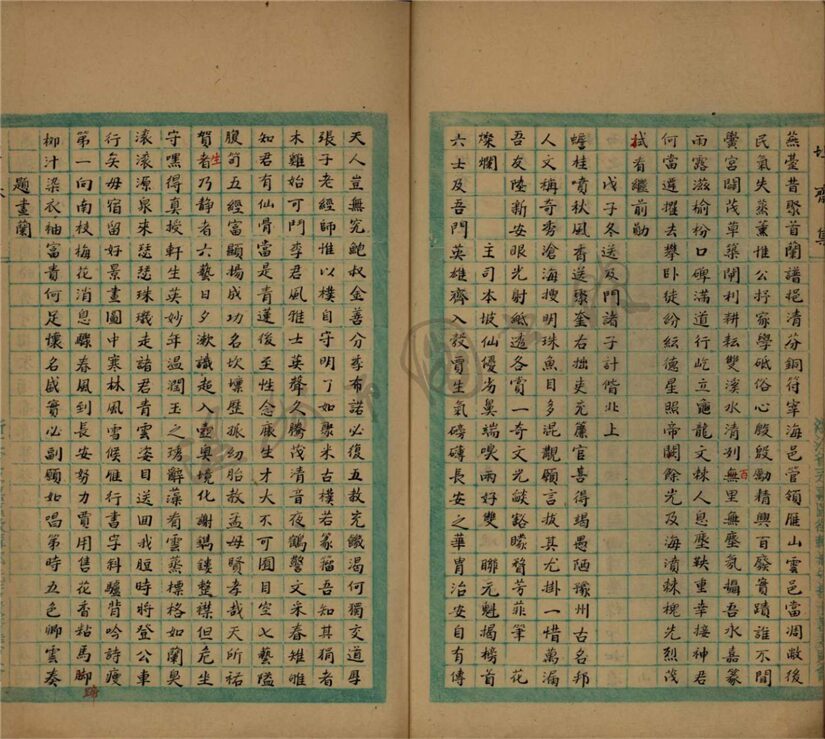 蕪臺昔聚首蘭譜挹清芬銅符宰海邑管領雁山雲邑當凋敝後
民氣失蒸薰惟公抒家學砥俗心殷殷勵精興百廢實蹟誰不聞
黌宮闢茂草築閘利耕耘雙溪水清列無里無塵氛攝吾永嘉篆
百
雨露滋榆枌口碑滿道行屹立竈龍文棘人息塵鞅重幸接神君
何當遽擢去攀卧徒紛紜德星照帝闕餘光及海濆棘槐先烈茂
拭看繼前勛
戊子冬送及門諸子計偕北上
蟾桂噴秋風香送聚奎右拙吏充簾官善得竭愚陋豫州古名邦
人文稱奇秀滄海搜明珠魚目多混觀願言拔其尤掛一惜萬漏
吾友陸新安眼光射紙透各賞一奇文光燄豁矇瞀芳菲筆花
燦爛主司本坡仙優劣異端嗅兩好雙聯元魁揭榜首
六士及吾門英雄齊入彀賈生氣磅礴長安之華胄治安自有傳
天人豈無究鮑叔金善分季布諾必復五教充饑渴何獨交道厚
張子老經師惟以樸自守明丁如聚米古樸若篆籀吾知其狷者
木雞始可鬥李君風雅士英聲久騰茂清音夜鶴警文采春雉雊
知君有仙骨當是青蓮後至性念廉生才大不可囿目空七藝隘
腹笥五經富顯揚成功名坎壈歷孤幼胎教孟母賢孝哉天所祐
賀者乃靜者六藝日夕漱識起入壺奧境化謝鞿鞻整襟但危坐
生
守嘿得真授軒生英妙年温潤玉之琇解藻看雲蒸標格如蘭臭
滾滾源泉來瑟瑟珠璣走諸君青雲姿目送回我脰時將登公車
行矣毋宿留好景畫圖中寒林風雪候雁行書字斜驢背吟詩瘦
第一向南枝梅花消息驟春風到長安努力買用售花香粘馬腳
蹄
柳汁染衣袖富貴何足懷名感實必副願如唱第時五色卿雲奏
題畫蘭